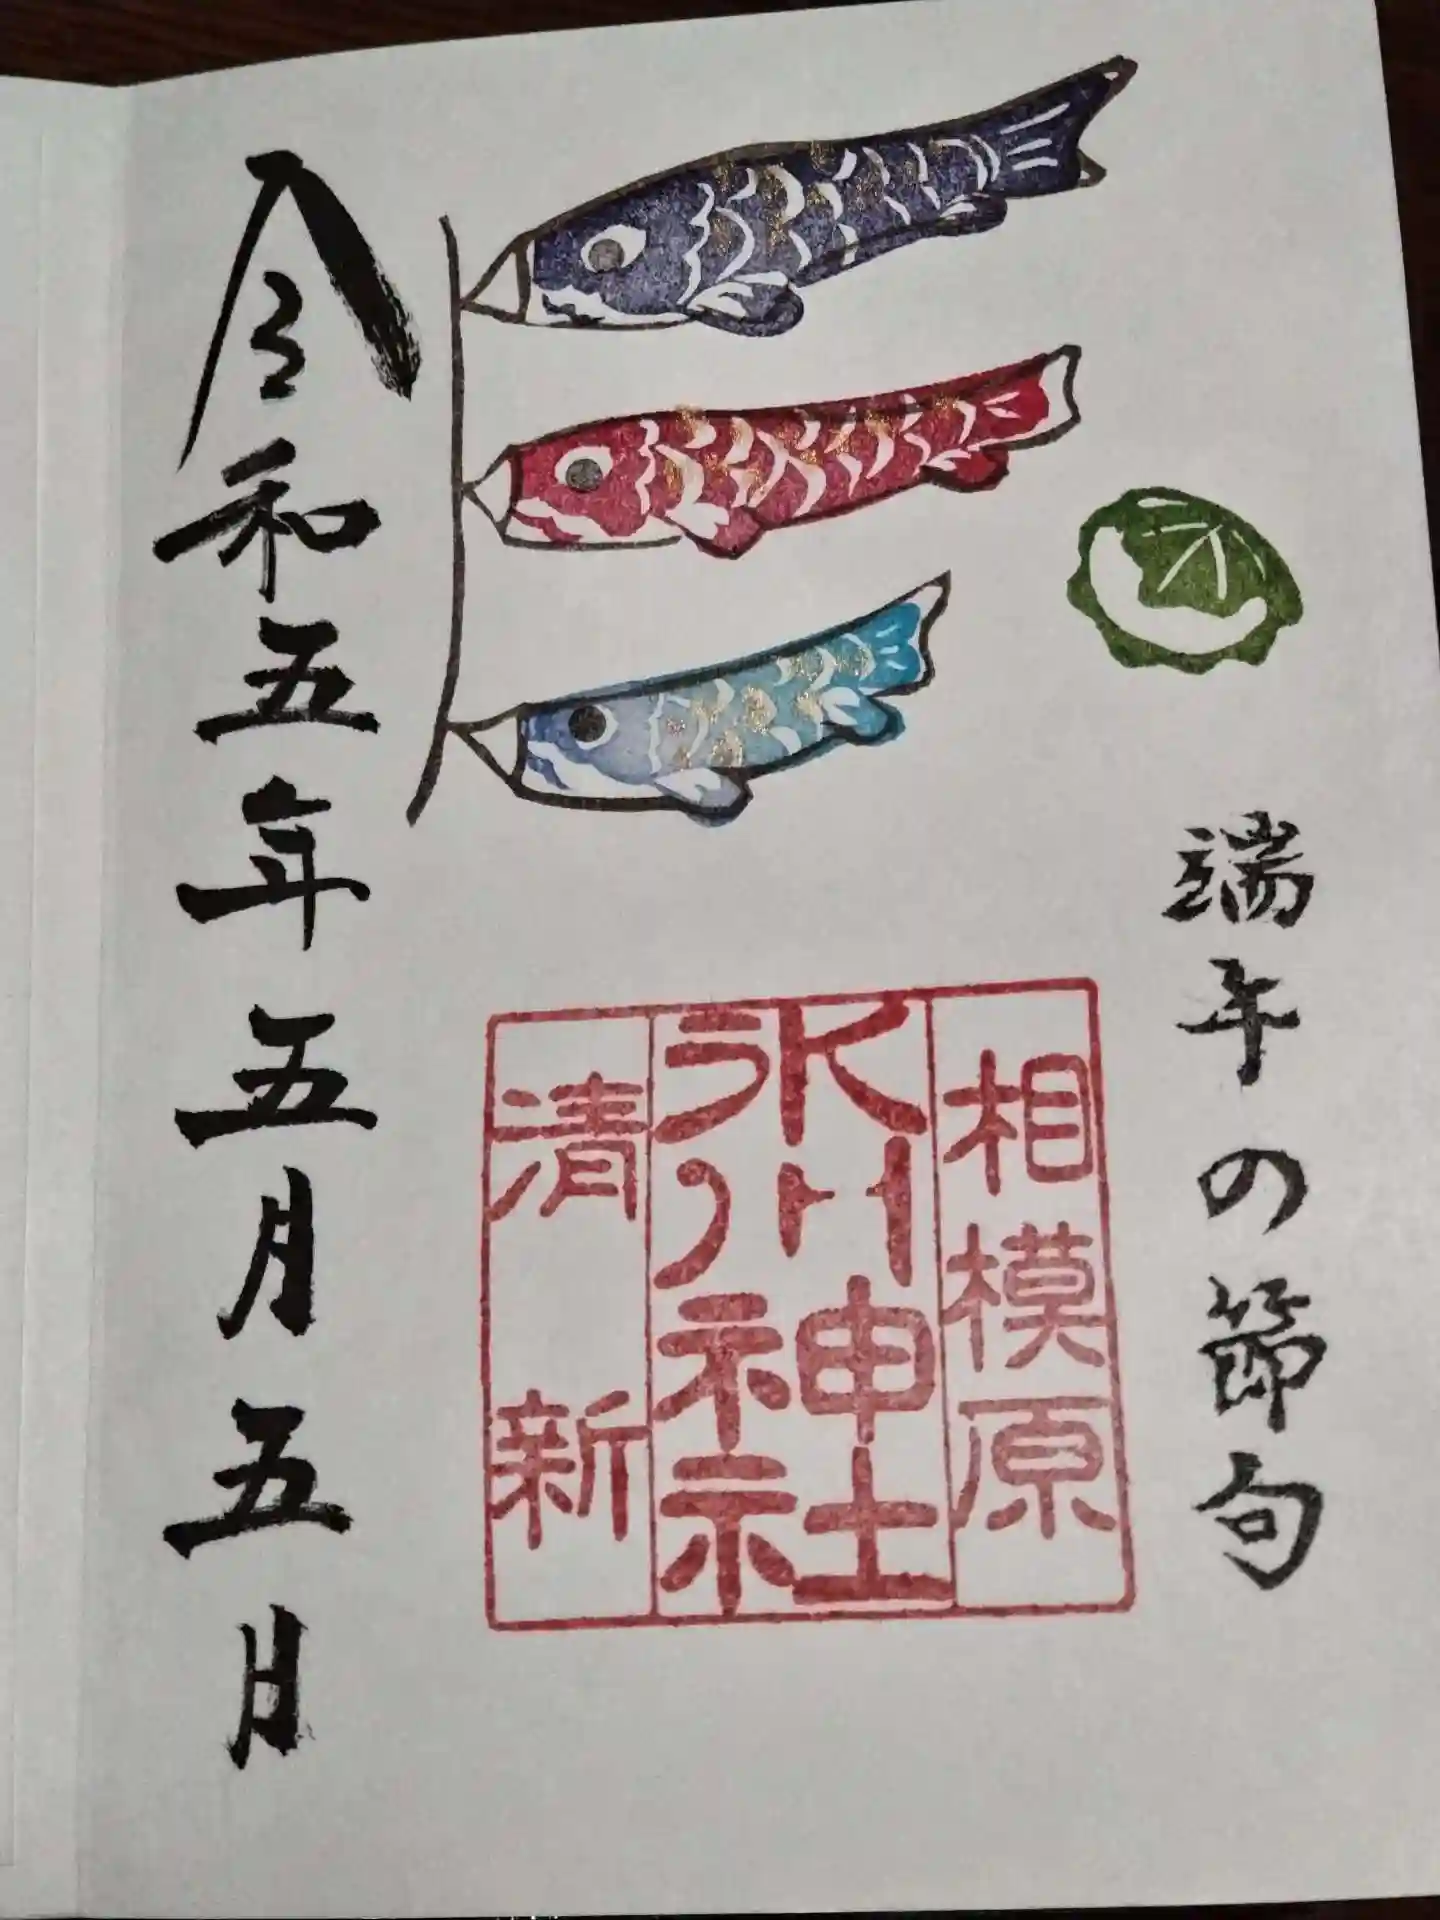 端午の節句
相模原
氷川神社
清新
令和五年五月五日